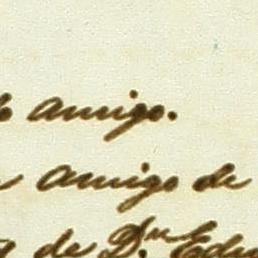 amigo.
amigo de
de D.ⁿ